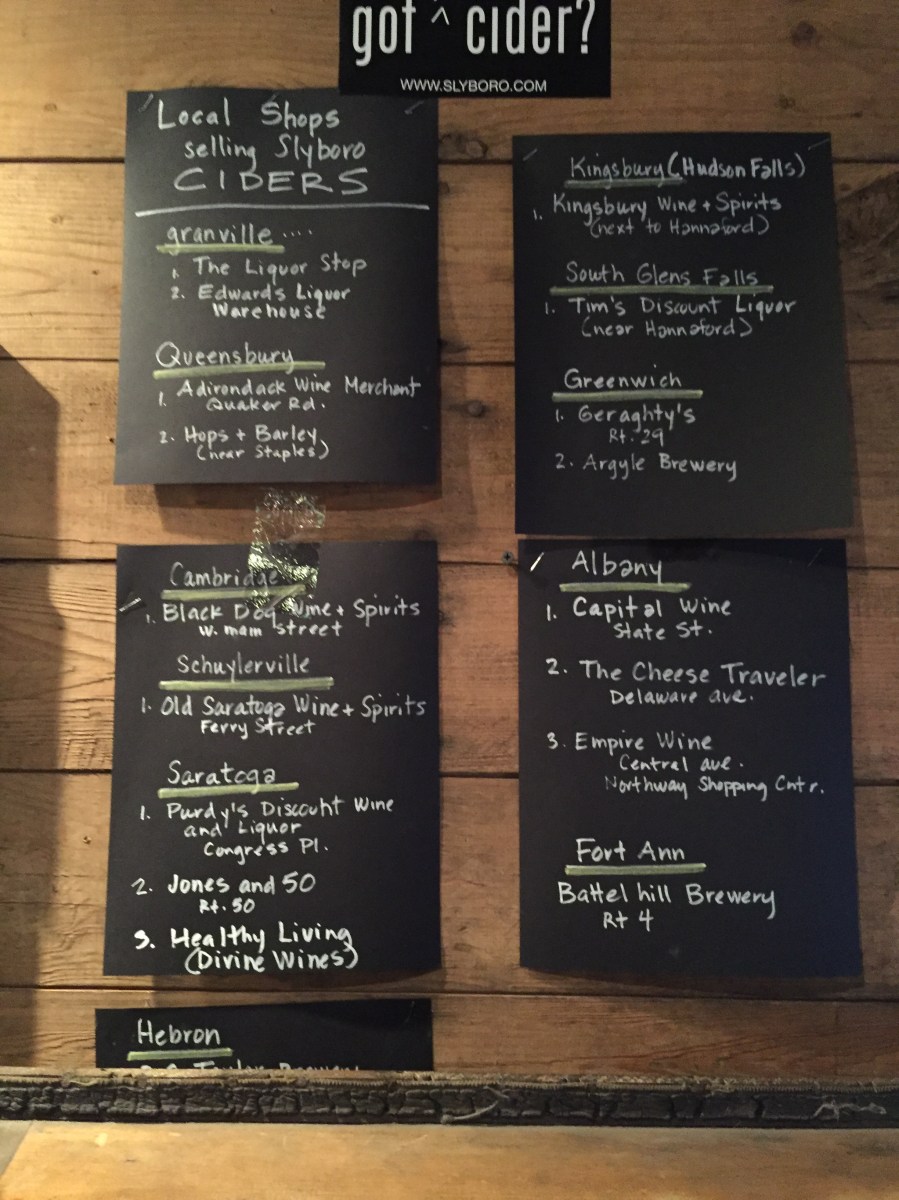 got ^ cider?
WWW.SLYBORO.COM
Local Shops
selling Slyboro
CIDERS
granville ....
1. The Liquor Stop
2. Edward's Liquor
Warehouse
Queensbury
1. Adirondack Wine Merchant
Quaker Rd.
2. Hops + Barley
(near Staples)
Kingsbury (Hudson Falls)
1. Kingsbury Wine + Spirits
(next to Hannaford)
South Glens Falls
1. Tim's Discount Liquor
(near Hannaford)
Greenwich
1. Geraghty's
Rt. 29
2. Argyle Brewery
Cambridge
1. Black Dog Wine + Spirits
W. main street
Schuylerville
1. Old Saratoga Wine + Spirits
Ferry Street
Saratoga
1. Purdy's Discount Wine
and Liquor
Congress Pl.
2. Jones and 50
Rt. 50
3. Healthy Living
(Divine Wines)
Albany
1. Capital Wine
State St.
2. The Cheese Traveler
Delaware ave.
3. Empire Wine
Central ave.
Northway Shopping Cntr.
Fort Ann
Battel hill Brewery
Rt 4
Hebron